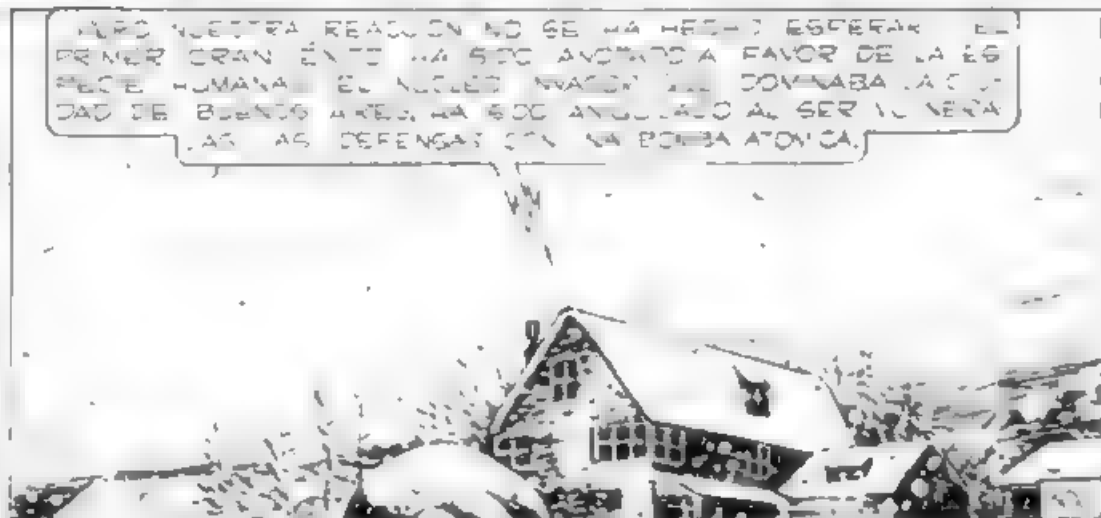 PERO NUESTRA REACCION NO SE HA HECHO ESPERAR. EL
PRIMER GRAN ÉXITO HA SIDO ANOTADO A FAVOR DE LA ES
PECIE HUMANA. EL NUCLEO INVASOR QUE DOMINABA LA CIU
DAD DE BUENOS AIRES, HA SIDO ANIQUILADO AL SER VULNERA
DAS LAS DEFENSAS CON UNA BOMBA ATOMICA.